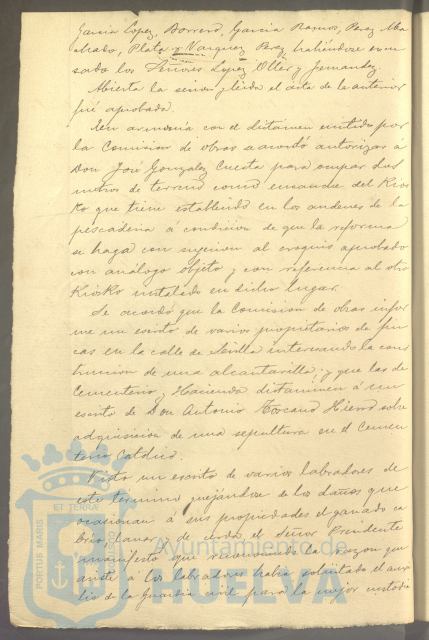 Garcia Lopez, Borrero, Garcia Ramos, Perez Ma
chado, Plata y Vazquez Perez, habiéndose excu
sado los Señores Lopez Oller y Fernandez.
Abierta la sesion y leida el acta de la anterior
fué aprobada.
En armonía con el dictámen emitido por
la Comision de obras se acordó autorizar á
Don José Gonzalez Cuesta para ocupar dos
metros de terreno como ensanche del Kios
Ko que tiene establecido en los andenes de la
pescaderia á condicion de que la reforma
se haga con sujecion al croquis aprobado
con análogo objeto y con referencia al otro
Kiosko instalado en dicho lugar.
Se acordó que la Comision de obras infor
me un escrito de varios propietarios de fin
cas en la calle de Sevilla interesando la cons
truccion de una alcantarilla; y que las de
Cementerio y Hacienda dictaminen á un
escrito de Don Antonio Toscano Hierro sobre
adquisicion de una sepultura en el Cemen
terio Católico.
Visto un escrito de varios labradores de
este término quejándose de los daños que
ocasionan á sus propiedades el ganado ca
brío lanar y de cerda, el Señor Presidente
manifestó que reconociendo la razon que
asiste á los labradores habia solicitado el auxi
lio de la Guardia civil para la mejor custodia
PORTUS MARIS ET TERRÆ
Ayuntamiento de
HUELVA